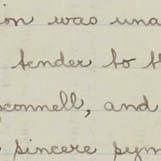 ion was una
tender to th
sconnell, and
sincere sym